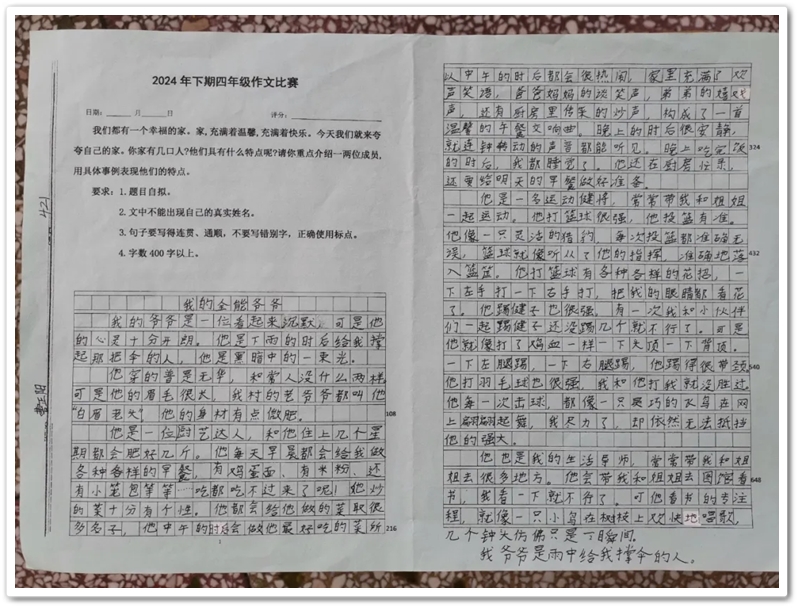 2024年下期四年级作文比赛
日期:____月____日 评分:____
我们都有一个幸福的家。家,充满着温馨,充满着快乐。今天我们就来夸
夸自己的家。你家有几口人?他们具有什么特点呢?请你重点介绍一两位成员,
用具体事例表现他们的特点。
要求:1.题目自拟。
2.文中不能出现自己的真实姓名。
3.句子要写得连贯、通顺,不要写错别字,正确使用标点。
4.字数400字以上。
421
我的全能爷爷
我的爷爷是一位看起来沉默,可是他
的心灵十分开朗。他是下雨的时后给我撑
起那把伞的人,他是黑暗中的一束光。
他穿的普是无华,和常人没什么两样
可是他的眉毛很大,我村的老爷爷都叫他
“白眉老大”。他的身材有点做肥。
108
他是一位厨艺达人,和他住上几个星
期都会肥好几斤。他每天早晨都会给我做
各种各样的早餐,有鸡蛋面、有米粉、还
有小笼包等等……吃都吃不过来了呢!他炒
的菜十分有个性。他都会给他做的菜取很
多名子,他中午的时后会做他最好吃的菜所
216
1
以中午的时后都会很热闹,家里充满了欢
声笑语,爸爸妈妈的谈笑声,弟弟的嬉戏
声,还有厨房里传来的炒声,构成了一首
温馨的午餐交响曲。晚上的时后很安静,
就连钟移动的声音都能听见。晚上吃完饭
324
的时后,我都睡觉了。他还在厨房忙来,
还要给明天的早餐做好准备。
他是一多运动健将,常常带我和姐姐
一起运动。他打篮球很强,他投篮有准。
他像一只灵活的猎豹,每次投篮都准确无
误,篮球就像听从了他的指挥,准确地落
432
入篮筐。他打篮球有各种各样的花招,一
下左手打一下右手打,把我的眼睛都看花
了。他踢健子也很强。有一次我和小伙伴
们一起踢健子还没踢几个就不行了。可是
他就像打了鸡血一样一下大顶一下背顶。
一下左腿踢,一下右腿踢,他踢得很带颈
540
他打羽毛球也很强。我和他打我就没胜过
他每一次击球,都像一只灵巧的水鸟在网
上翩翩起舞,我尽力了,却依然无法抵挡
他的强大。
他也是我的生活导师,常常带我和姐
姐去很多地方。他会带我和姐姐去图官看
648
书,我看一下就不行了。可他看书的专注
程,就像一只小鸟在树枝上欢快地唱歌,
几个钟头仿佛只是一个瞬间。
我爷爷是雨中给我撑伞的人。